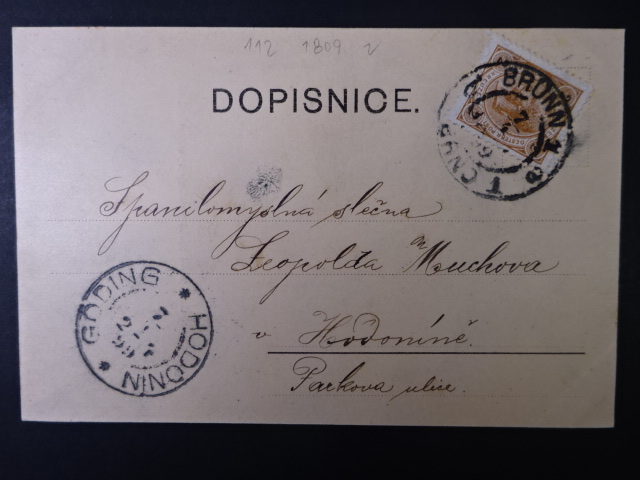 112 1809
DOPISNICE.
BRÜNN 1
Spanilomyslná slečna
Leopolda Muchova
v Hodoníně
Parkova ulice.
GÖDING * HODONIN *